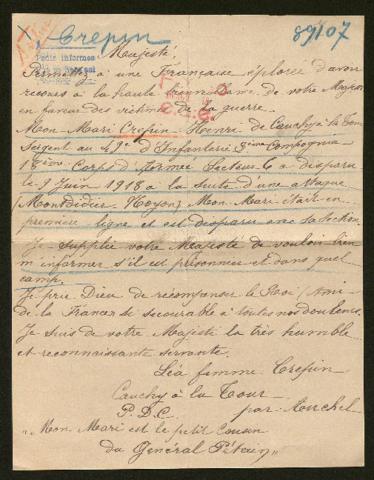 Crepin
89107
Majesté
Permettez à une Française éplorée d'avoir
recours à la haute bienveillance de votre Majesté
en faveur des victimes de la guerre.
Mon Mari Crepin Henri de Cauchy à la Tour
Sergent au 49e d'Infanterie 3ième Compagnie
18ième Corps d'Armée Secteur 6 a disparu
le 9 Juin 1918 à la suite d'une attaque
(Montdidier-Noyon) Mon Mari était en
première ligne et est disparu avec sa section.
Je Supplie votre Majesté de vouloir bien
m'informer s'il est prisonnier et dans quel
camp.
Je prie Dieu de récompenser le Roi, Ami
de la France si secourable à toutes nos douleurs.
Je suis de votre Majesté la très humble
et reconnaissante servante.
Léa femme Crepin
Cauchy à la Tour
P.D.C. par Auchel
"Mon Mari est le petit Cousin
du Général Pétain"